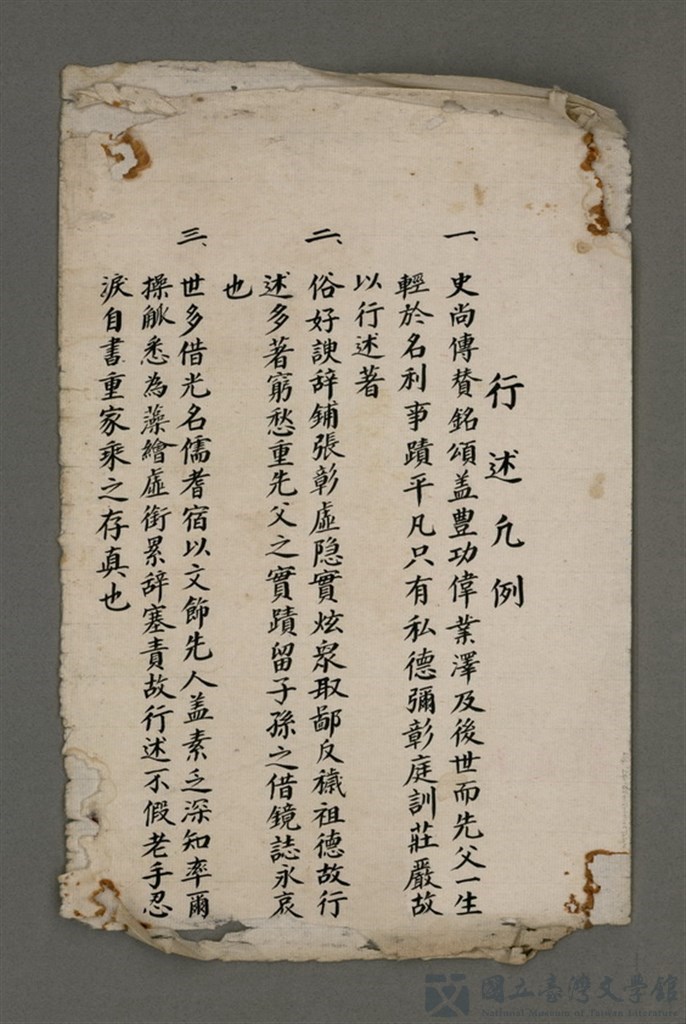 行述凡例
一、史尚傳贊銘頌盖豐功偉業澤及後世而先父一生
輕於名利事蹟平凡只有私德彌彰庭訓莊嚴故
以行述著
二、俗好諛辞鋪張彰虛隐實炫衆取鄙反穢祖德故行
述多著窮愁重先父之實蹟留子孫之借鏡誌永哀
也
三、世多借光名儒耆宿以文飾先人盖素乏深知率爾
操觚悉為藻繪虛銜累辞塞責故行述不假老手忍
淚自書重家乘之存真也
國立臺灣文學館
National Museum of Taiwan Literature